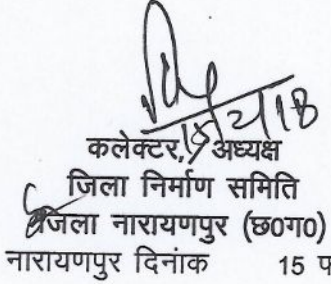 कलेक्टर, अध्यक्ष
जिला निर्माण समिति
जिला नारायणपुर (छ0ग0)
नारायणपुर दिनांक 15